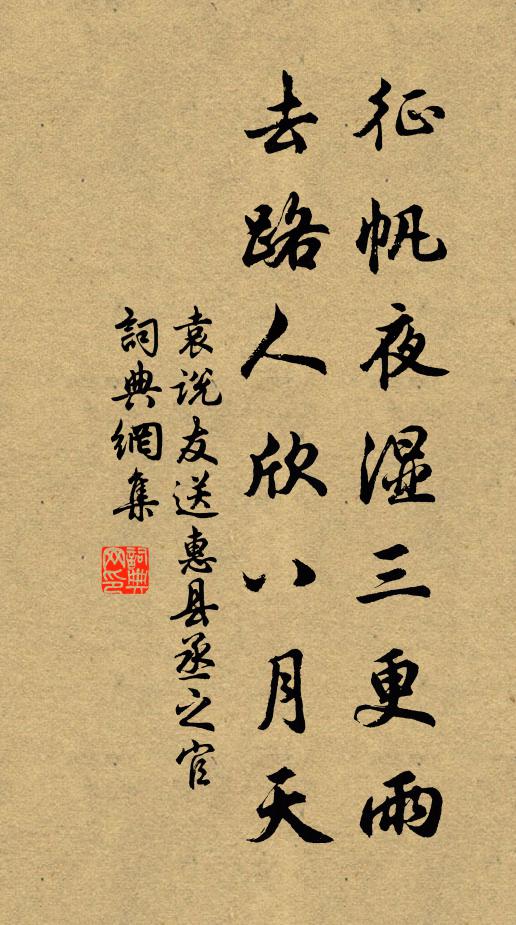 征帆夜湿三更雨
去路人欣八月天
袁说友送惠县丞之官
詞典網集
詞典網印